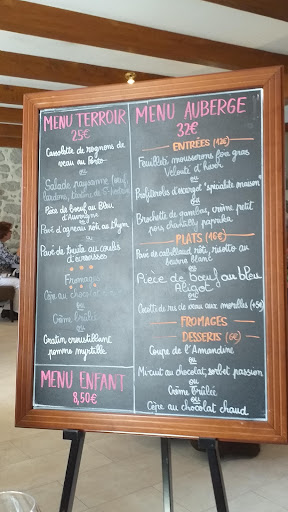 MENU TERROIR
25€
Cassolette de rognons de
veau au Porto
ou
Salade paysanne (œuf,
lardons,
Pièce de bœuf au Bleu
d'Auvergne
ou
Pavé d'agneau rôti au thym
ou
Pavé de truite au coulis
d'écrevisses
Fromages
ou
Cèpe au chocolat
ou
Crème Brûlée
ou
Gratin croustillant
pomme myrtille
MENU ENFANT
8,50€
MENU AUBERGE
32€
ENTRÉES (12€)
Feuilleté mousserons foie gras
Velouté d'hiver
ou
Profiteroles d'escargot "spécialité maison"
ou
Brochette de gambas, crème petit
pois, chantilly paprika
PLATS (16€)
Pavé de cabillaud rôti, risotto au
beurre blanc
ou
Pièce de bœuf au bleu
Aligot
ou
Cocotte de ris de veau aux morilles (+5€)
FROMAGES
DESSERTS (6€)
Coupe de l'Amandine
ou
Mi-cuit au chocolat, sorbet passion
ou
Crème Brûlée
ou
Cèpe au chocolat chaud